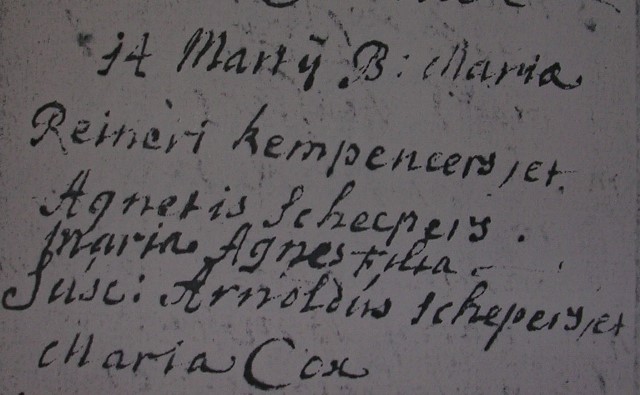 14 Martÿ B: Maria
Reineri kempeneers, et
Agnetis Scheepers.
Maria Agnes Filia
Susc: Arnoldus Schepers, et
Maria Cox